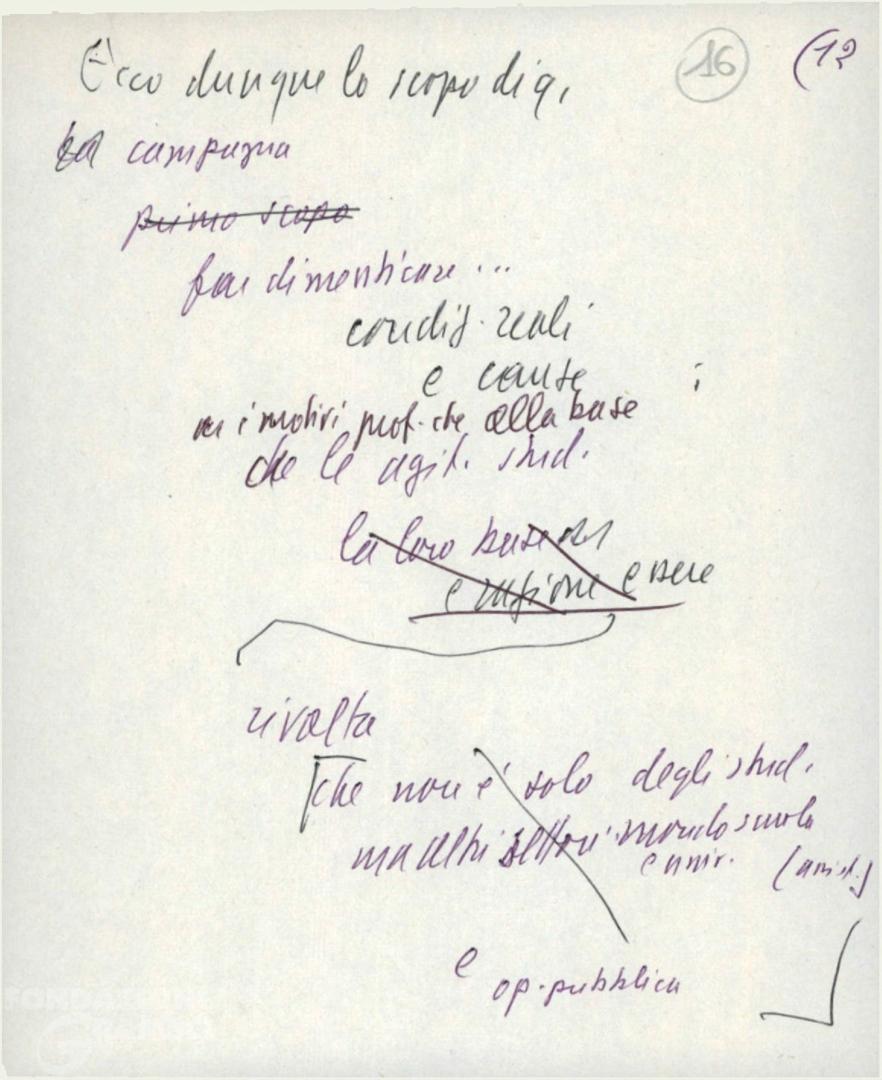 16 (12
Ecco dunque lo scopo di q.
campagna
primo scopo
far dimenticare...
condiz. reali
e cause ;
i motivi prof. che alla base
che le agit. stud.
la loro base
e ragione essere
rivolta
che non è solo degli stud.
ma altri settori mondo scuola
e univ.
e op. pubblica